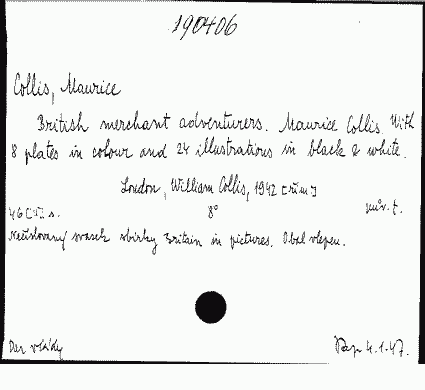 190406
Collis, Maurice
British merchant adventurers. Maurice Collis. With
8 plates in colour and 24 illustrations in black & white.
London, William Collis, 1942
46 s. 8°
Nečíslovaný svazek sbírky Britain in pictures. Obal vlepen.
Dar vlády 4.1.47.